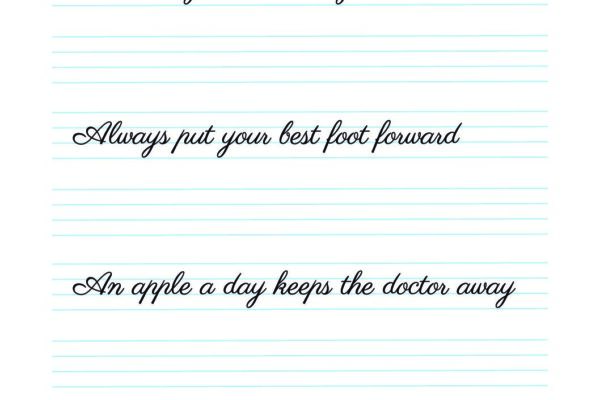 Always put your best foot forward
An apple a day keeps the doctor away